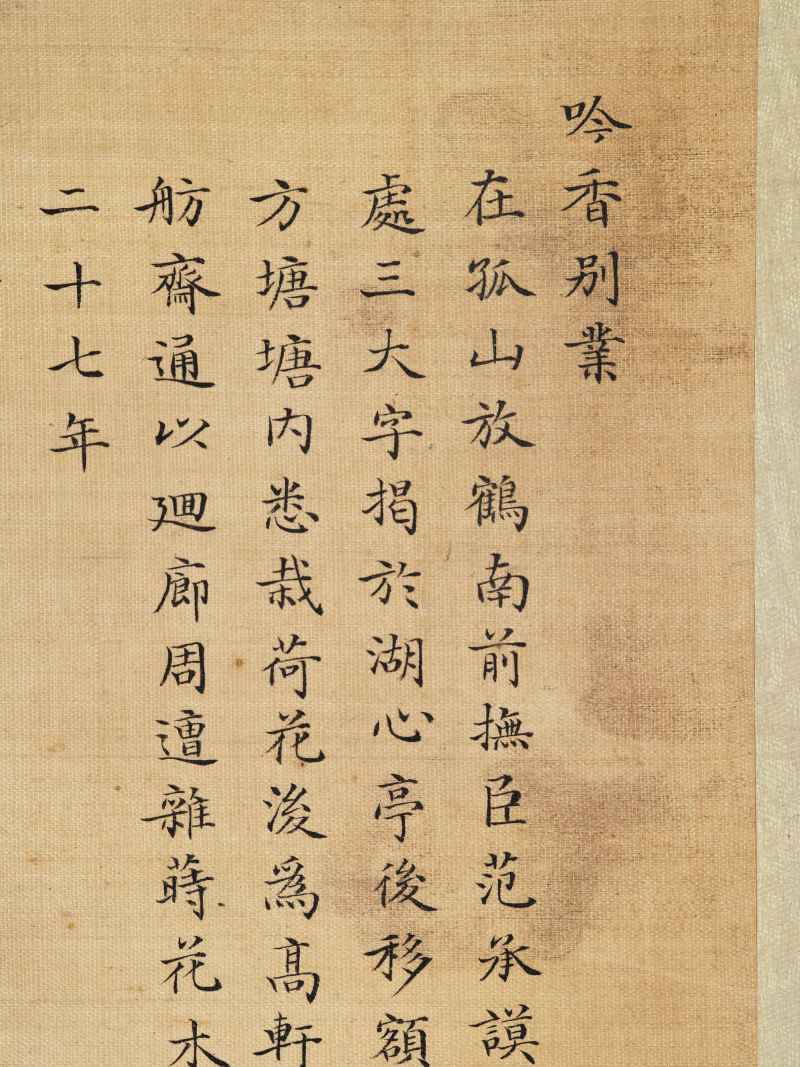 吟香別業
在孤山放鶴南前撫臣范承謨
處三大字揭於湖心亭後移額
方塘塘內悉栽荷花後爲高軒
舫齋通以廻廊周遭雜蒔花木
二十七年